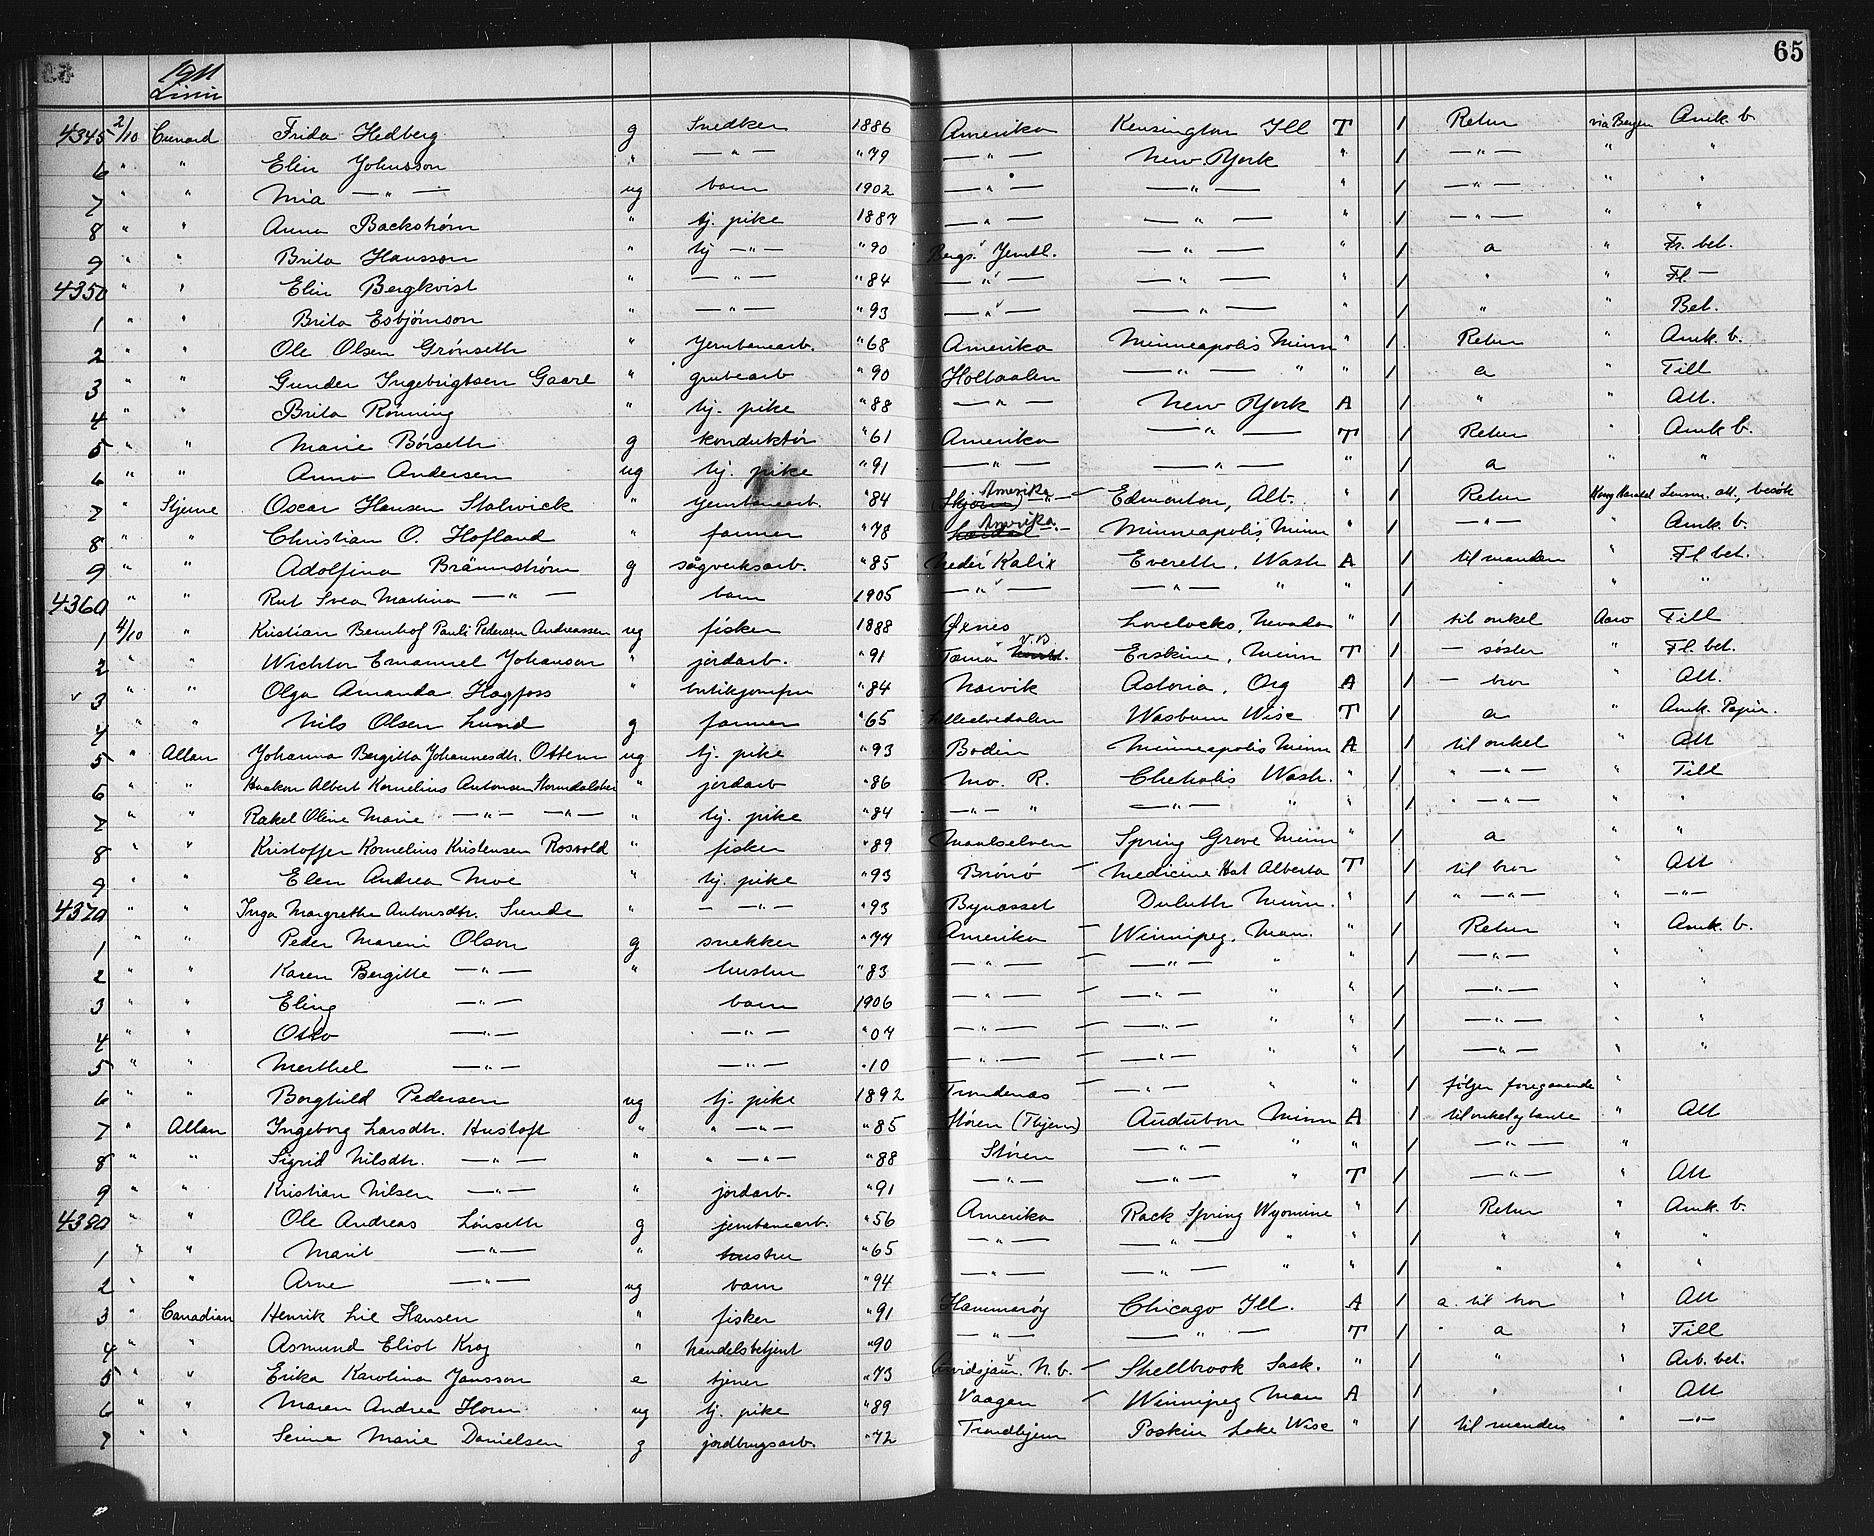 65
1911
Linie
4345 2/10 Cunard Frida Hedberg g Snedker 1886 Amerika Kensington Ill T 1 Retur via Bergen Amk. b.
6 " " Elin Johnsson " — " — " 79 — " — New York " 1 — " — " "
7 " " Mia — " — ug barn 1902 — " — — " — " 1 — " — " "
8 " " Anna Backstrøm " tj. pike 1887 — " — — " — " 1 — " — " "
9 " " Brita Hansson " tj — " — " 90 Bergs. Jemtl. — " — " 1 a " Fr. bet.
4350 " " Elin Bergkvist " — " — " 84 — " — — " — " 1 " " Fl —
1 " " Brita Esbjörnson " — " — " 93 — " — — " — " 1 " " Bet.
2 " " Ole Olsen Grönseth " Jernbanearb. " 68 Amerika Minneapolis Minn " 1 Retur " Amk. b.
3 " " Gunder Ingebrigtsen Gaare " grubearb " 90 Holtaalen — " — " " 1 a " Till
4 " " Brita Rönning " tj. pike " 88 — " — New York A 1 " " Att.
5 " " Marie Börseth g konduktör " 61 Amerika — " — T 1 Retur " Amk b.
6 " " Anna Andersen ug tj. pike " 91 — " — — " — " 1 a " "
7 " Stjerne Oscar Hansen Stalwick " Jernbanearb. " 84 Amerika — Edmonton, Alt. " 1 Retur Kong Harald Lensm. att., besök
8 " " Christian O. Hofland " farmer " 78 Amerika Minneapolis Minn " 1 — " — " Amk. b.
9 " " Adolfina Brännström g sågverksarb. " 85 Neder Kalix Everett, Wash A 1 til manden " Fl. bet.
4360 " " Rut Svea Martina — " — barn 1905 — " — — " — " " 1 " " "
1 4/10 " Kristian Bernhof Pauli Pedersen Andreassen ug fisker 1888 Ørnes Lovelocks, Nevada " 1 til onkel Aaro Till
2 " " Wichtor Emanuel Johanson " jordarb. " 91 Tärna V.B. Erskine, Minn T 1 — søster " Fl. bet.
v 3 " " Olga Amanda Hagfoss " butikjomfru " 84 Narvik Astoria, Org A 1 — bror " Att.
4 " " Nils Olsen Lund g farmer " 65 Lilleelvedalen Wasburn Wisc T 1 a " Amk. Papir.
5 " Allan Johanna Bergitta Johannesdtr. Ottem ug tj. pike " 93 Bodin Minneapolis Minn A 1 til onkel " Att
6 " " Haakon Albert Kornelius Antonsen Stormdalshei " jordarb " 86 Mo. R. Chehalis Wash. " 1 " — " — " Till
7 " " Rakel Oline Marie — " — — " — " tj. pike " 84 — " — " — " — " " 1 " — " — " "
8 " " Kristoffer Kornelius Kristensen Rosvold " fisker " 89 Maalselven Spring Grove Minn " 1 a " "
9 " " Elen Andrea Moe " tj. pike " 93 Brönö — Medicine Hat Alberta T 1 til bror " Att
4370 " " Inga Margrethe Antonsdtr. Sunde " — " — " 93 Bynesset Duluth Minn. " 1 " — " — " — " —
1 " " Peder Mareni Olson g snekker " 77 Amerika — Winnipeg, Man. " 1 Retur " Amk. b.
2 " " Karen Bergitte — " — " hustru " 83 — " — — — " — " " 1 — " — " "
3 " " Eling — " — barn 1906 — " — — — " — " " 1 — " — " "
4 " " Otto — " — — " — " 07 — " — — — " — " " 1 — " — " "
5 " " Merthel — " — — " — " 10 — " — — — " — " " 1 — " — " "
6 " " Borghild Pedersen ug tj. pike 1892 Trondenæs — — " — " " 1 følger foregaaende "
7 " Allan Ingeborg Larsdtr. Hustoft " " — " — " 85 Stören (Thjem) Audubon Minn A 1 til onkel og tante " Att
8 " " Sigrid Nilsdtr. — " — " " — " — " 88 Stören — " — " " 1 — " — "
9 " " Kristian Nilsen — " — " jordarb. " 91 — " — — " — " T 1 — " — " Att
4380 " " Ole Andreas Lönseth g jernbanearb. " 56 Amerika Rock Spring Wyomine " 1 Retur " Amk. b.
1 " " Marit — " — " hustru " 65 — " — — " — " " 1 " " "
2 " " Arne — " — ug barn " 94 — " — — " — " " 1 " " "
3 " Canadian Henrik Lie Hansen " fisker " 91 Hammerøy Chicago Ill. A 1 a. til bror " Att
4 " " Asmund Eliot Krog " handelsbetjent " 90 — " — — " — T 1 " a " Till
5 " " Erika Karolina Jansson e tjener " 73 Arvidsjaur. N. b. — Shellbrook Sask. " 1 " " Arb. bet.
6 " " Maren Andrea Horn ug tj. pike " 89 Vaagan — Winnipeg Man A 1 " " Att
7 " " Serine Marie Danielsen g jordbrugsarb. " 72 Trondhjem Poskin Lake Wisc " 1 til manden " — " —